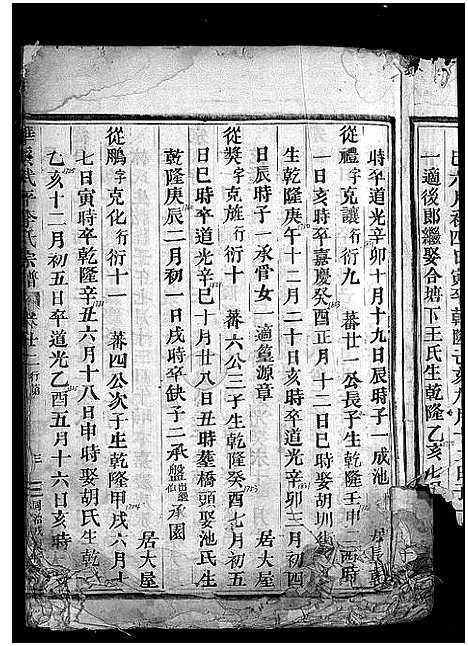 巳六月初四日寅時卒乾隆
一適後郎繼娶合塘下王氏生乾隆乙亥七
時卒道光辛卯十月十九日辰時子一成池
從禮字克讓行衍九 蕃廿一公長子生乾隆壬申
一日亥時卒嘉慶癸酉正月十二日巳時娶胡圳
生乾隆庚午十二月二十日亥時卒道光辛卯三月初四
日辰時子一承霄女一適篁源章 居大屋
從獎字克旌行衍十 蕃六公三子生乾隆癸酉七月初五
日巳時卒道光辛巳十月廿八日丑時葬橋頭娶池氏生
乾隆庚辰二月初一日戌時卒缺子二承盤出繼伯承園
從鵬字克化行衍十一 蕃四公次子生乾隆甲戌六月十
七日寅時卒乾隆辛丑六月十八日申時娶胡氏生乾
乙亥十二月初五日卒道光乙酉五月十六日亥時 居大屋
氏宗譜 卷廿二 行第 三